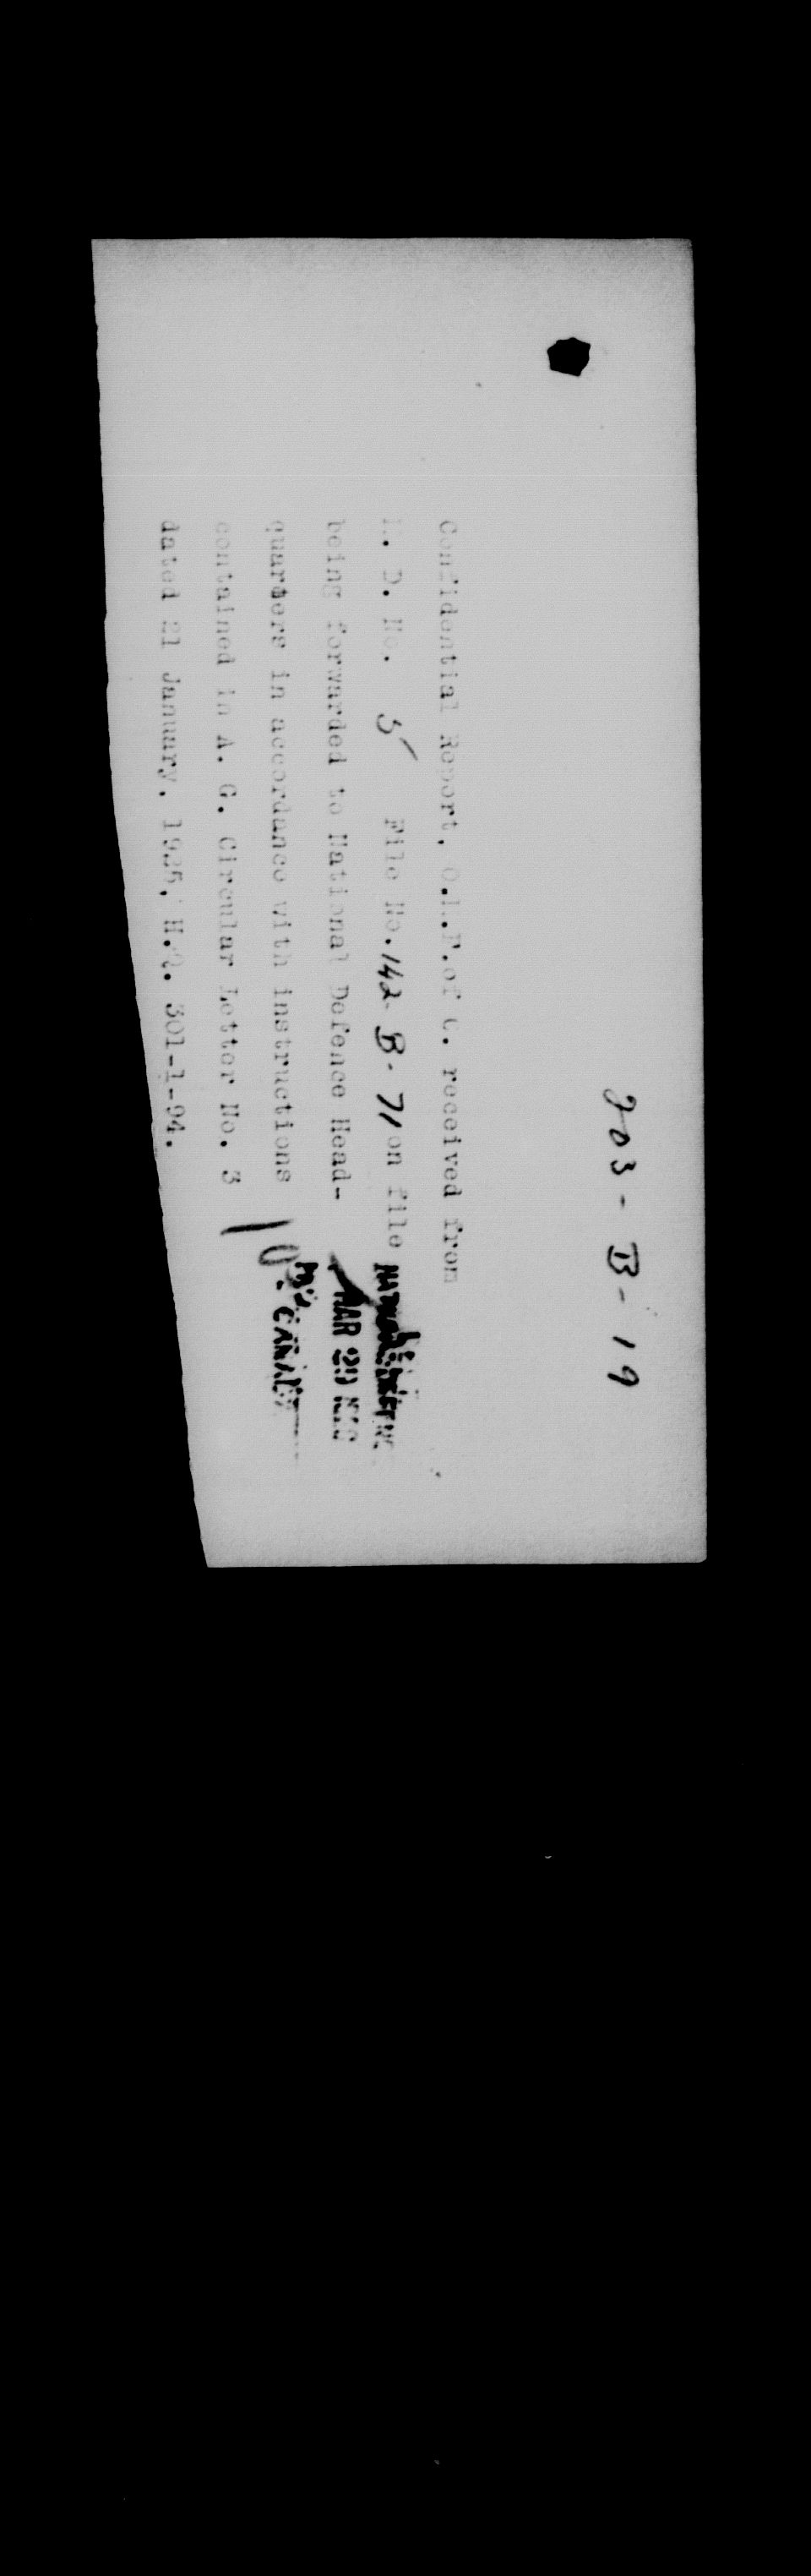 203 - B - 19
Confidential Report, O.M.F.of C. received from
M. D. No. 5 File No. 142 B. 71 on file
being forwarded to National Defence Head-
quarters in accordance with instructions
contained in A. G. Circular Letter No. 3
dated 21 January, 1925, H.Q. 301-1-94.
MAR 29
CANADA